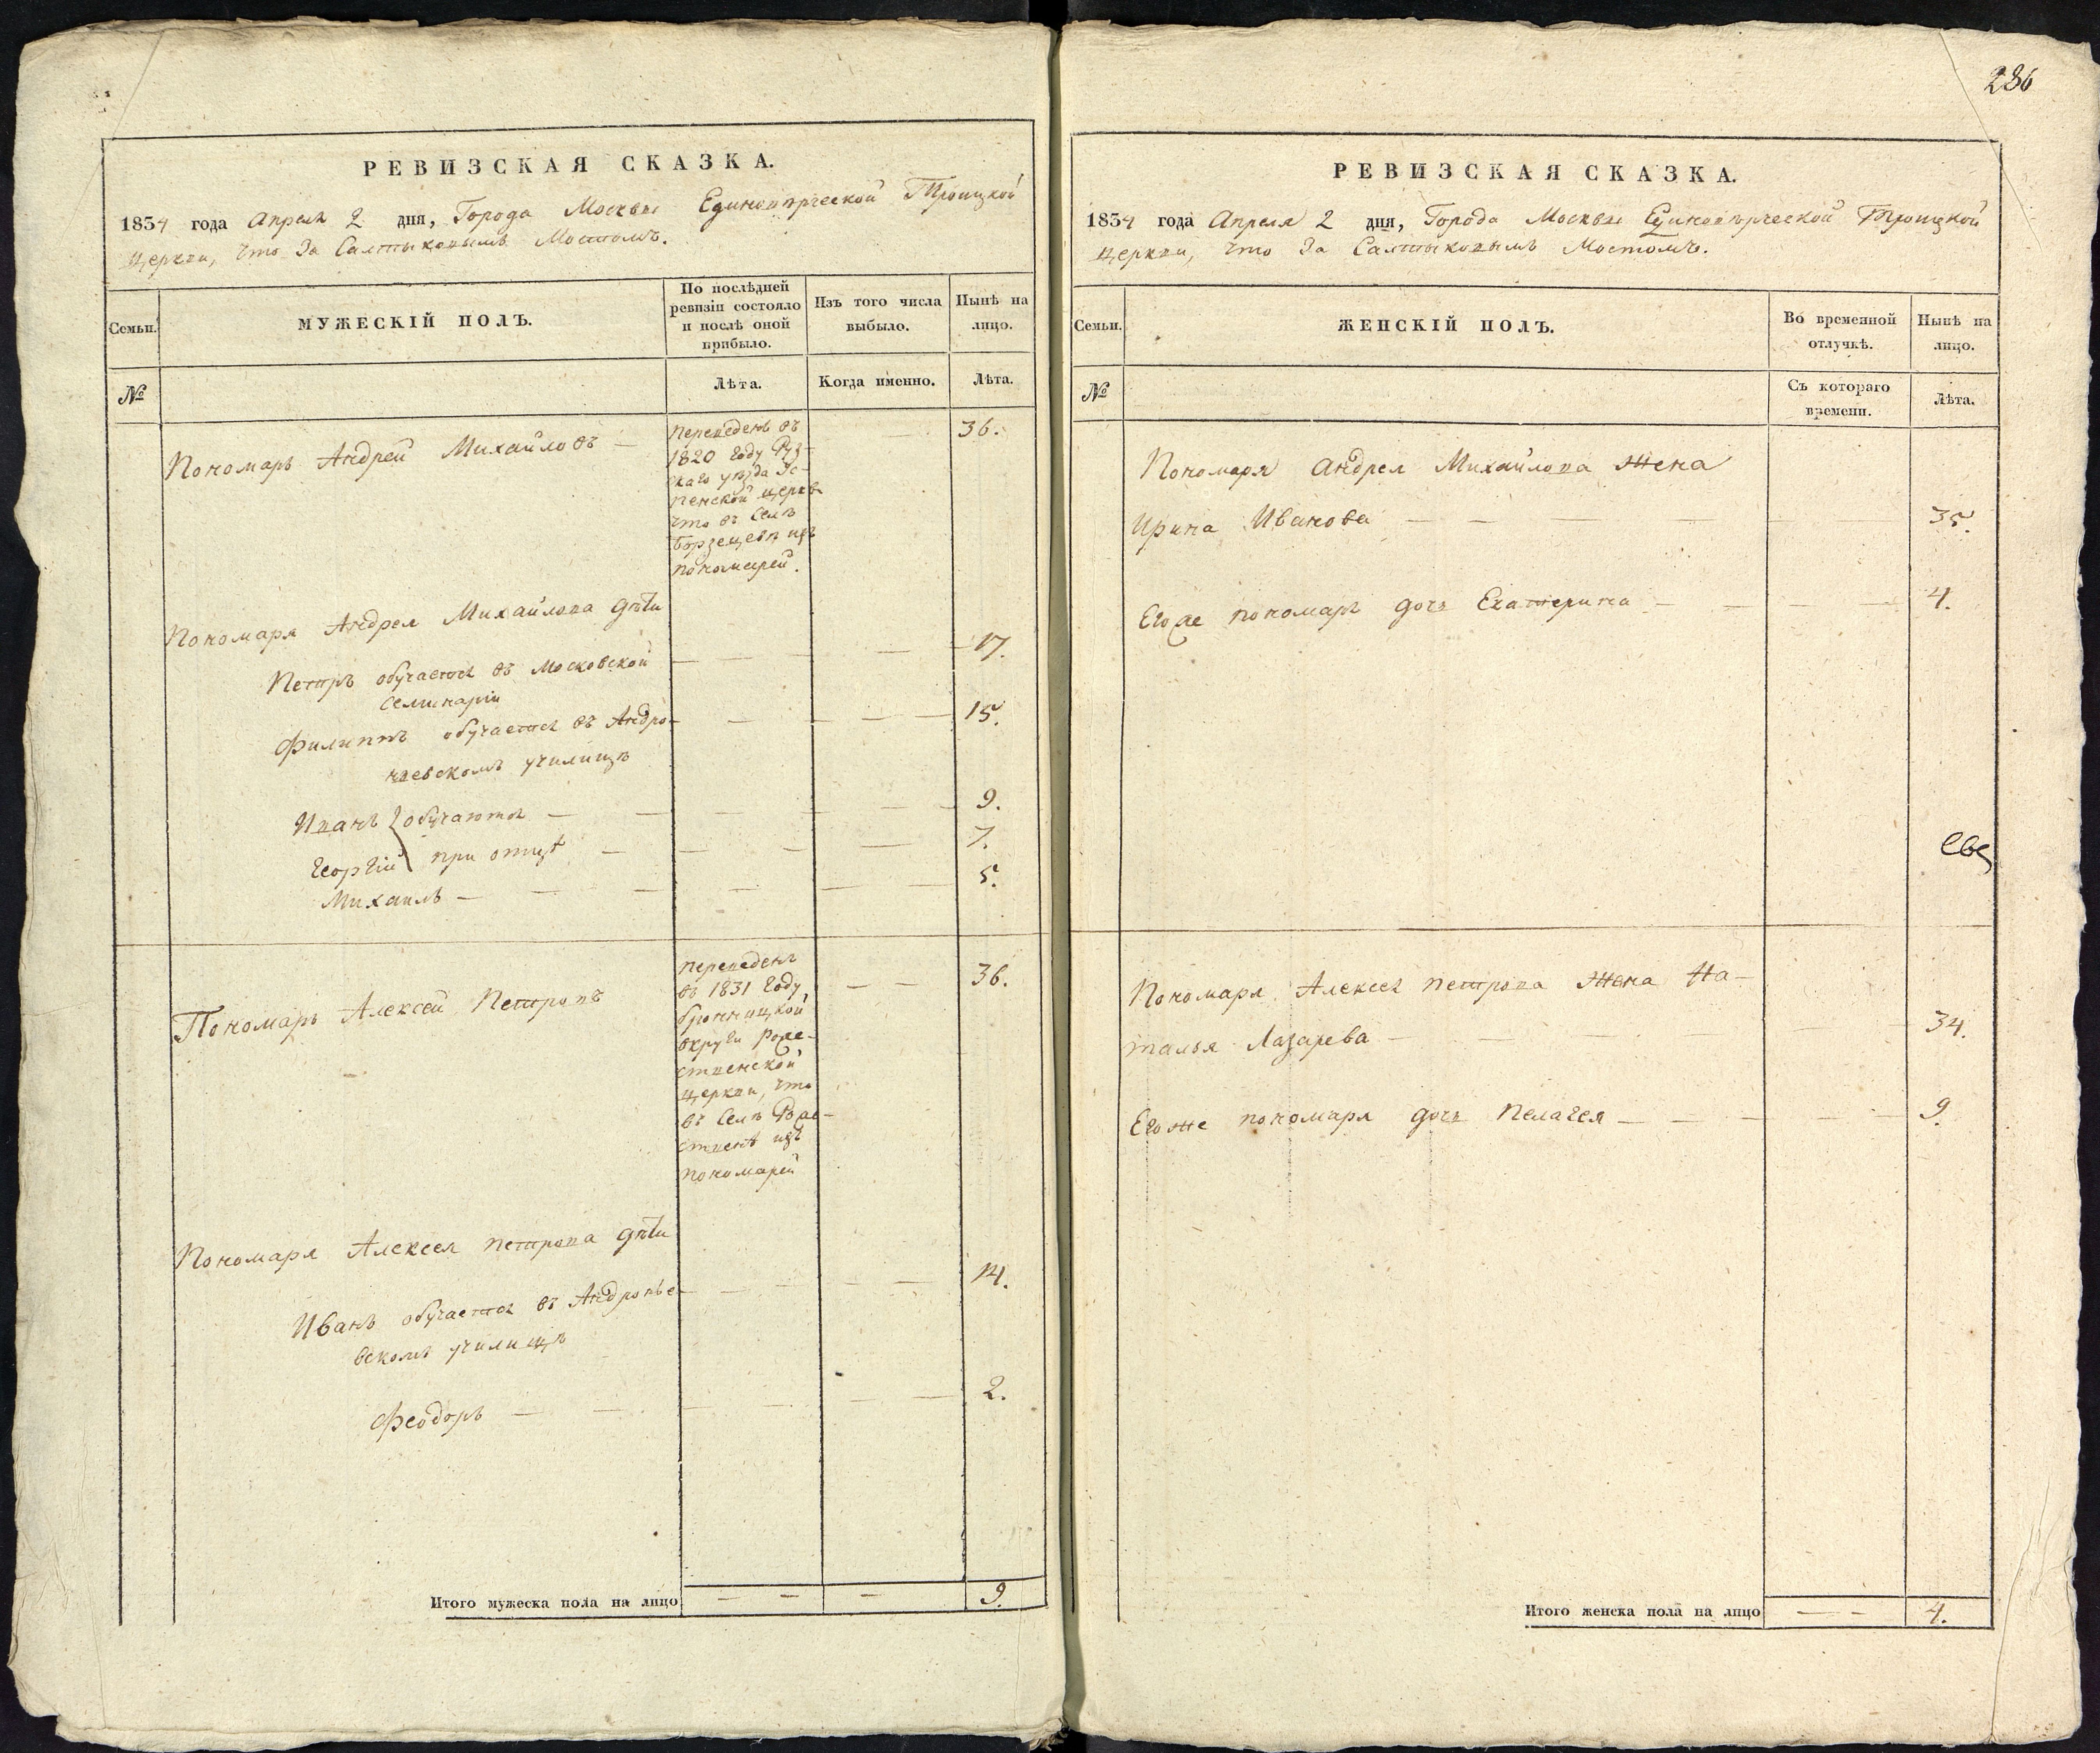 РЕВИЗСКАЯ СКАЗКА.
1834 года Апреля 2 дня, Города Москвы Единовѣрческой Троицкой
церкви, что за Салтыковымъ Мостомъ.
Семьи.
МУЖЕСКІЙ ПОЛЪ.
По послѣдней
ревизіи состояло
и послѣ оной
прибыло.
Изъ того числа
выбыло.
Нынѣ на
лицо.
№
Лѣта.
Когда именно.
Лѣта.
Пономарь Андрей Михайловъ — 36.
переведенъ въ
1820 году Руз-
скаго уѣзда Ус-
пенской церкви
что въ селѣ
изъ
пономарей.
Пономаря Андрея Михайлова дѣти
Петръ обучается въ Московской 17.
семинаріи
Филиппъ обучается въ Андро- 15.
ньевскомъ училищѣ
Иванъ } обучаются — 9.
Георгій } при отцѣ — 7.
Михаилъ — 5.
Пономарь Алексей Петровъ — — 36.
переведенъ
въ 1831 году
бронницкой
округи Рože-
ственской
церкви, что
въ селѣ Роже-
ственѣ изъ
пономарей
Пономаря Алексея Петрова дѣти
Иванъ обучается въ Андроньe- 14.
вскомъ училищѣ
Феодоръ — 2.
Итого мужеска пола на лицо — — — 9.
286
РЕВИЗСКАЯ СКАЗКА.
1834 года Апреля 2 дня, Города Москвы Единовѣрческой Троицкой
церкви, что за Салтыковымъ Мостомъ.
Семьи.
ЖЕНСКІЙ ПОЛЪ.
Во временной
отлучкѣ.
Нынѣ на
лицо.
№
Съ котораго
времени.
Лѣта.
Пономаря Андрея Михайлова жена
Ирина Иванова — 35.
Егоже пономаря дочь Екатерина — 4.
Пономаря Алексея Петрова жена На-
талья Лазарева — 34.
Егоже пономаря дочь Пелагея — 9.
Итого женска пола на лицо — — 4.